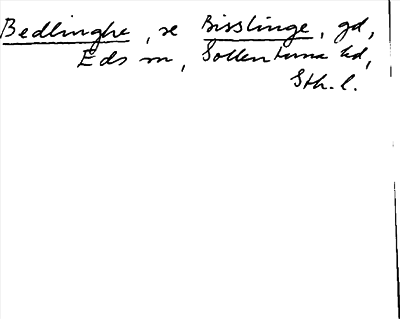 Bedlinghe, se Bisslinge, gd,
Eds sn, Sollentuna hd,
Sth. l.